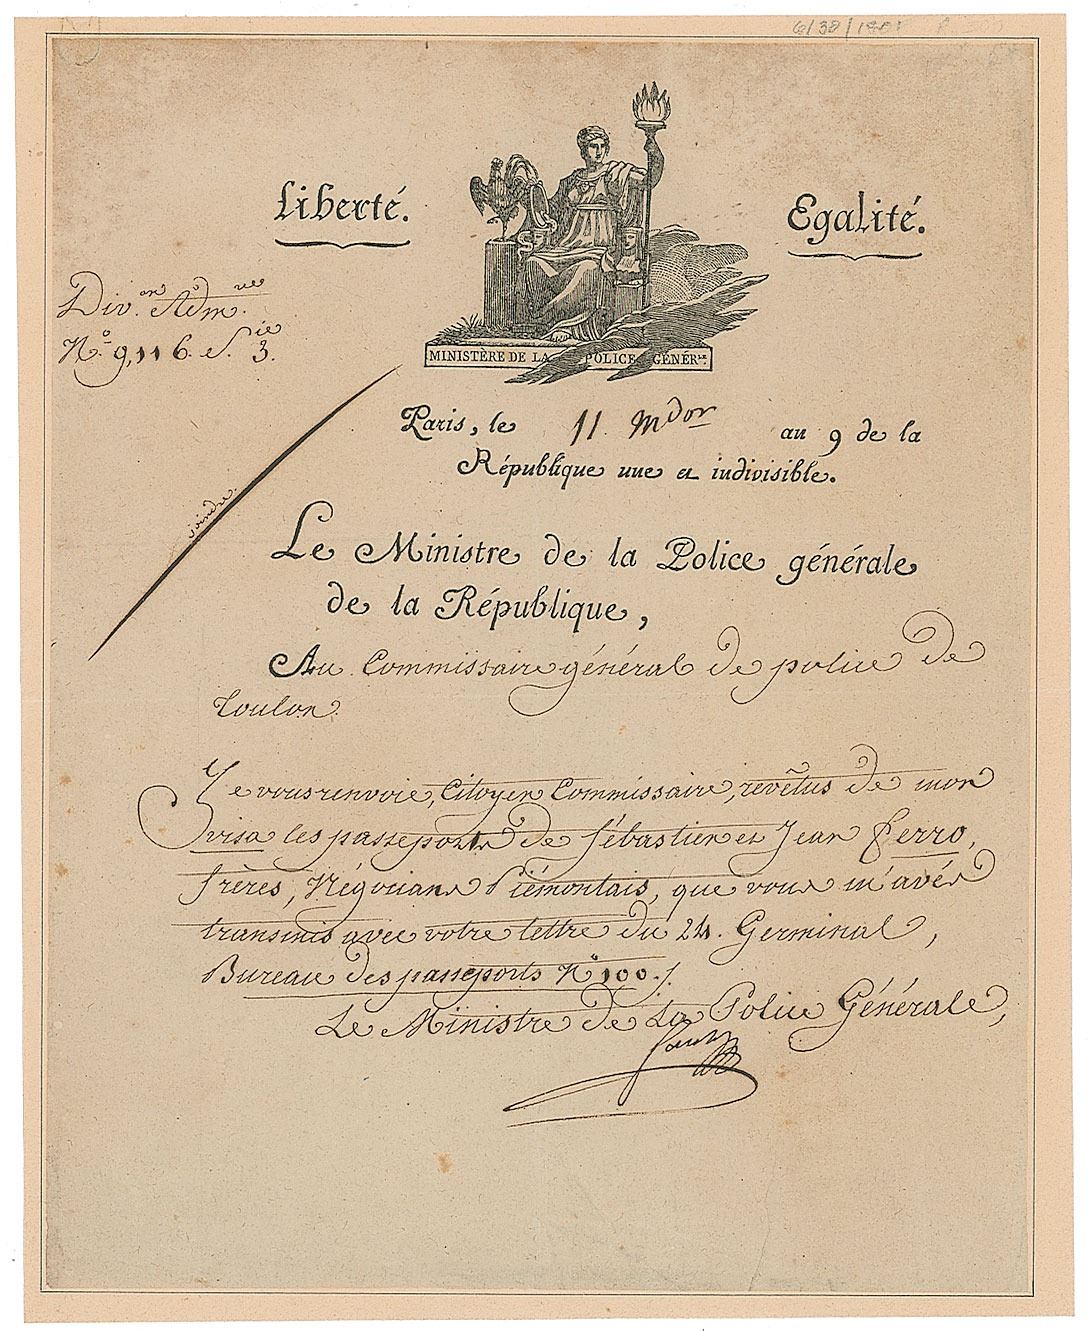 Liberté.
Egalité.
Div.on Adm.ve
N.o 9,116. S.ie 3.
MINISTÈRE DE LA POLICE GÉNÉR.LE
Paris, le 11 mdor an 9 de la
République une et indivisible.
joindre.
Le Ministre de la Police générale
de la République,
Au Commissaire général de police de
Toulon.
Je vous renvoie, Citoyen Commissaire, revêtus de mon
visa les passeports de Sébastien et Jean Ferro,
frères, Négocians Piémontais, que vous m'avés
transmis avec votre lettre du 24. Germinal,
Bureau des passeports N.o 100./.
Le Ministre de La Police Générale,